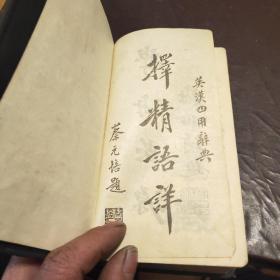 英漢四用辭典
擇精語詳
蔡元培題